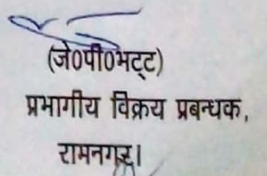 (जे0पी0भट्ट)
प्रभागीय विक्रय प्रबन्धक,
रामनगर।